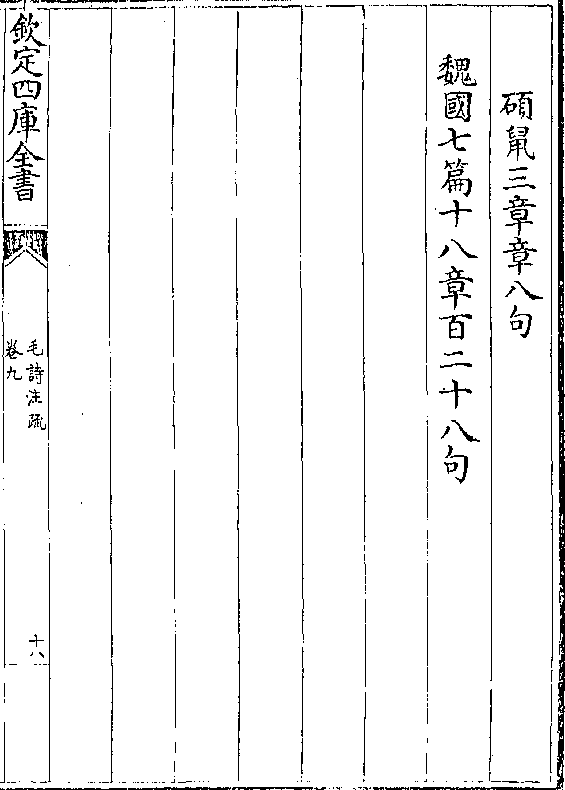 碩鼠三章章八句
魏國七篇十八章百二十八句
欽定四庫全書
毛詩注疏
卷九
十八